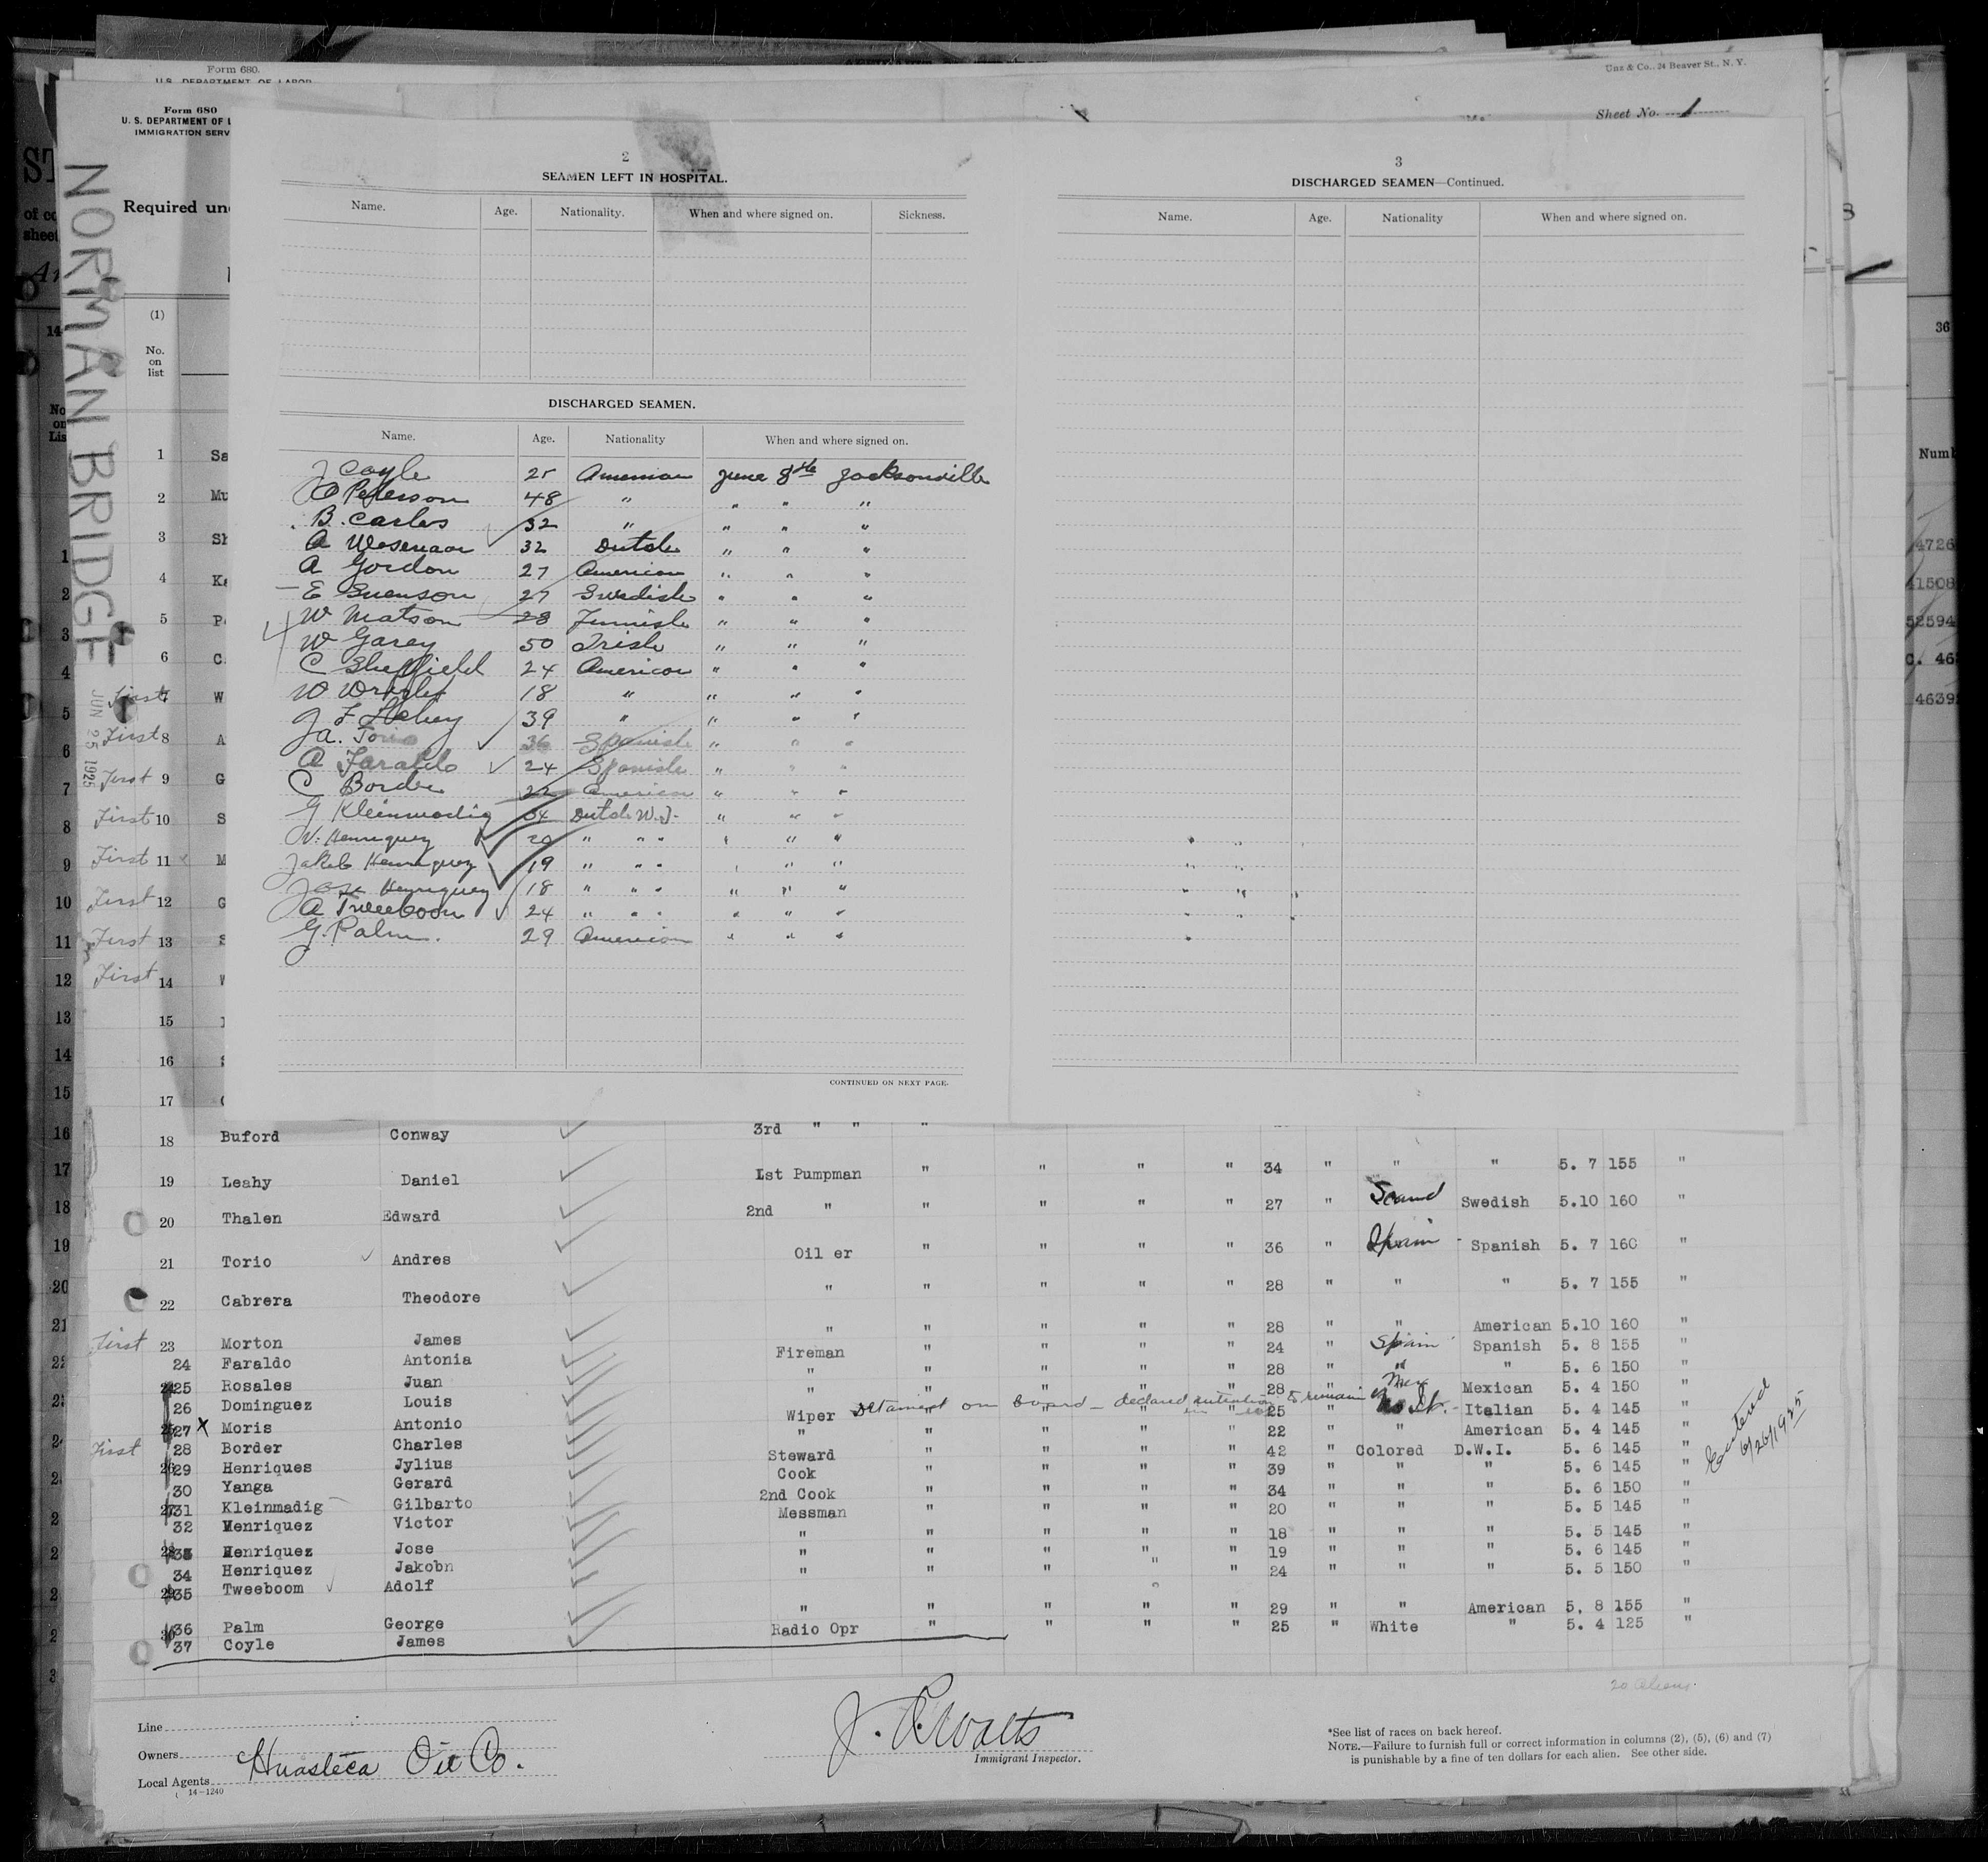 Form 680.
U.S. DEPARTMENT OF LABOR
Unz & Co., 24 Beaver St., N. Y.
Form 680
U. S. DEPARTMENT OF L
IMMIGRATION SERV
Sheet No. 1
Required un
NORMAN BRIDGE
JUN 25 1925
(1)
No.
on
list
2
SEAMEN LEFT IN HOSPITAL.
Name. Age. Nationality. When and where signed on. Sickness.
DISCHARGED SEAMEN.
Name. Age. Nationality When and where signed on.
J Coyle 25 American June 8th Jacksonville
O Peterson 48 " " " "
B. Carlos 32 " " " "
A Wesenaar 32 Dutch " " "
A Gordon 27 American " " "
E Swenson 27 Swedish " " "
W Matson 28 Finnish " " "
W Garey 50 Irish " " "
C Sheffield 24 American " " "
W 18 " " " "
J F 39 " " " "
A. Torio 36 Spanish " " "
A Faraldo 24 Spanish " " "
C Border 22 American " " "
G Kleinmadig 34 Dutch W.I. " " "
V. Henriquez 20 " " " " " "
Jakob Henriquez 19 " " " " " "
Jose Henriquez 18 " " " " " "
A Tweeboom 24 " " " " " "
G. Palm. 29 American " " "
CONTINUED ON NEXT PAGE.
3
DISCHARGED SEAMEN—Continued.
Name. Age. Nationality When and where signed on.
1 Sa
2 Mu
3 Sh
4 Ka
5
6 C
First 7 W
First 8 A
First 9 G
First 10 S
First 11 M
First 12 G
First 13 S
First 14
15
16
17
18 Buford Conway 3rd " " "
19 Leahy Daniel 1st Pumpman " " " " 34 " " " 5. 7 155 "
20 Thalen Edward 2nd " " " " " 27 " Scand Swedish 5.10 160 "
21 Torio Andres Oil er " " " " 36 " Spain Spanish 5. 7 160 "
22 Cabrera Theodore " " " " " 28 " " " 5. 7 155 "
First 23 Morton James " " " " " 28 " " American 5.10 160 "
24 Faraldo Antonia Fireman " " " " 24 " Spain Spanish 5. 8 155 "
25 Rosales Juan " " " " " 28 " " " 5. 6 150 "
26 Dominguez Louis " " " " " 28 " Mex Mexican 5. 4 150 "
27 X Moris Antonio Wiper Detained on board - declared intention to remain in 25 " It. Italian 5. 4 145 "
First 28 Border Charles " " " " " 22 " " American 5. 4 145 "
29 Henriques Jylius Steward " " " " 42 " Colored D.W.I. 5. 6 145 "
30 Yanga Gerard Cook " " " " 39 " " " 5. 6 145 "
31 Kleinmadig Gilbarto 2nd Cook " " " " 34 " " " 5. 6 150 "
32 Henriquez Victor Messman " " " " 20 " " " 5. 5 145 "
33 Henriquez Jose " " " " " 18 " " " 5. 5 145 "
34 Henriquez Jakobn " " " " " 19 " " " 5. 6 145 "
35 Tweeboom Adolf " " " " " 24 " " " 5. 5 150 "
36 Palm George " " " " " 29 " " American 5. 8 155 "
37 Coyle James Radio Opr " " " " 25 " White " 5. 4 125 "
Entered
6/26/1925
20 Aliens.
Line
Owners
Huasteca Oil Co.
Local Agents
14-1240
Immigrant Inspector.
*See list of races on back hereof.
NOTE.—Failure to furnish full or correct information in columns (2), (5), (6) and (7)
is punishable by a fine of ten dollars for each alien. See other side.
36
Numb
4726
41508
52594
C. 46
4639